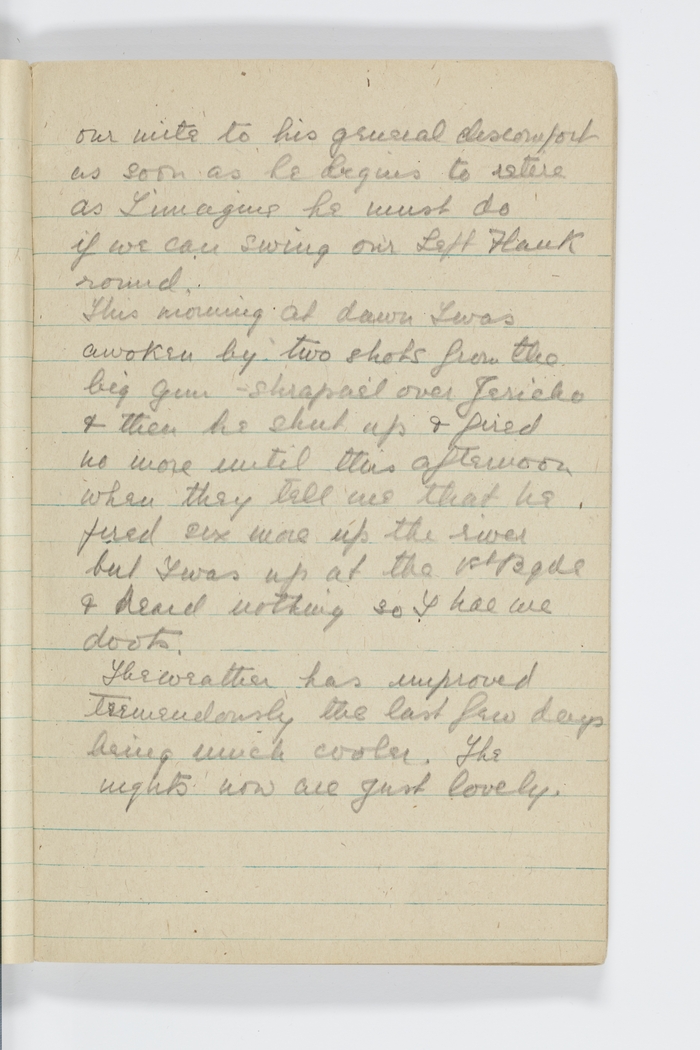 our mite to his general discomfort
as soon as he begins to retire
as I imagine he must do
if we can swing our Left Flank
round.
This morning at dawn I was
awoken by two shots from the
big gun - shrapnel over Jericho
& then he shut up & fired
no more until this afternoon
when they tell me that he
fired six more up the river
but I was up at the 1st Bgde
& heard nothing so I hae me
doots.
The weather has improved
tremendously the last few days
being much cooler. The
nights now are just lovely.